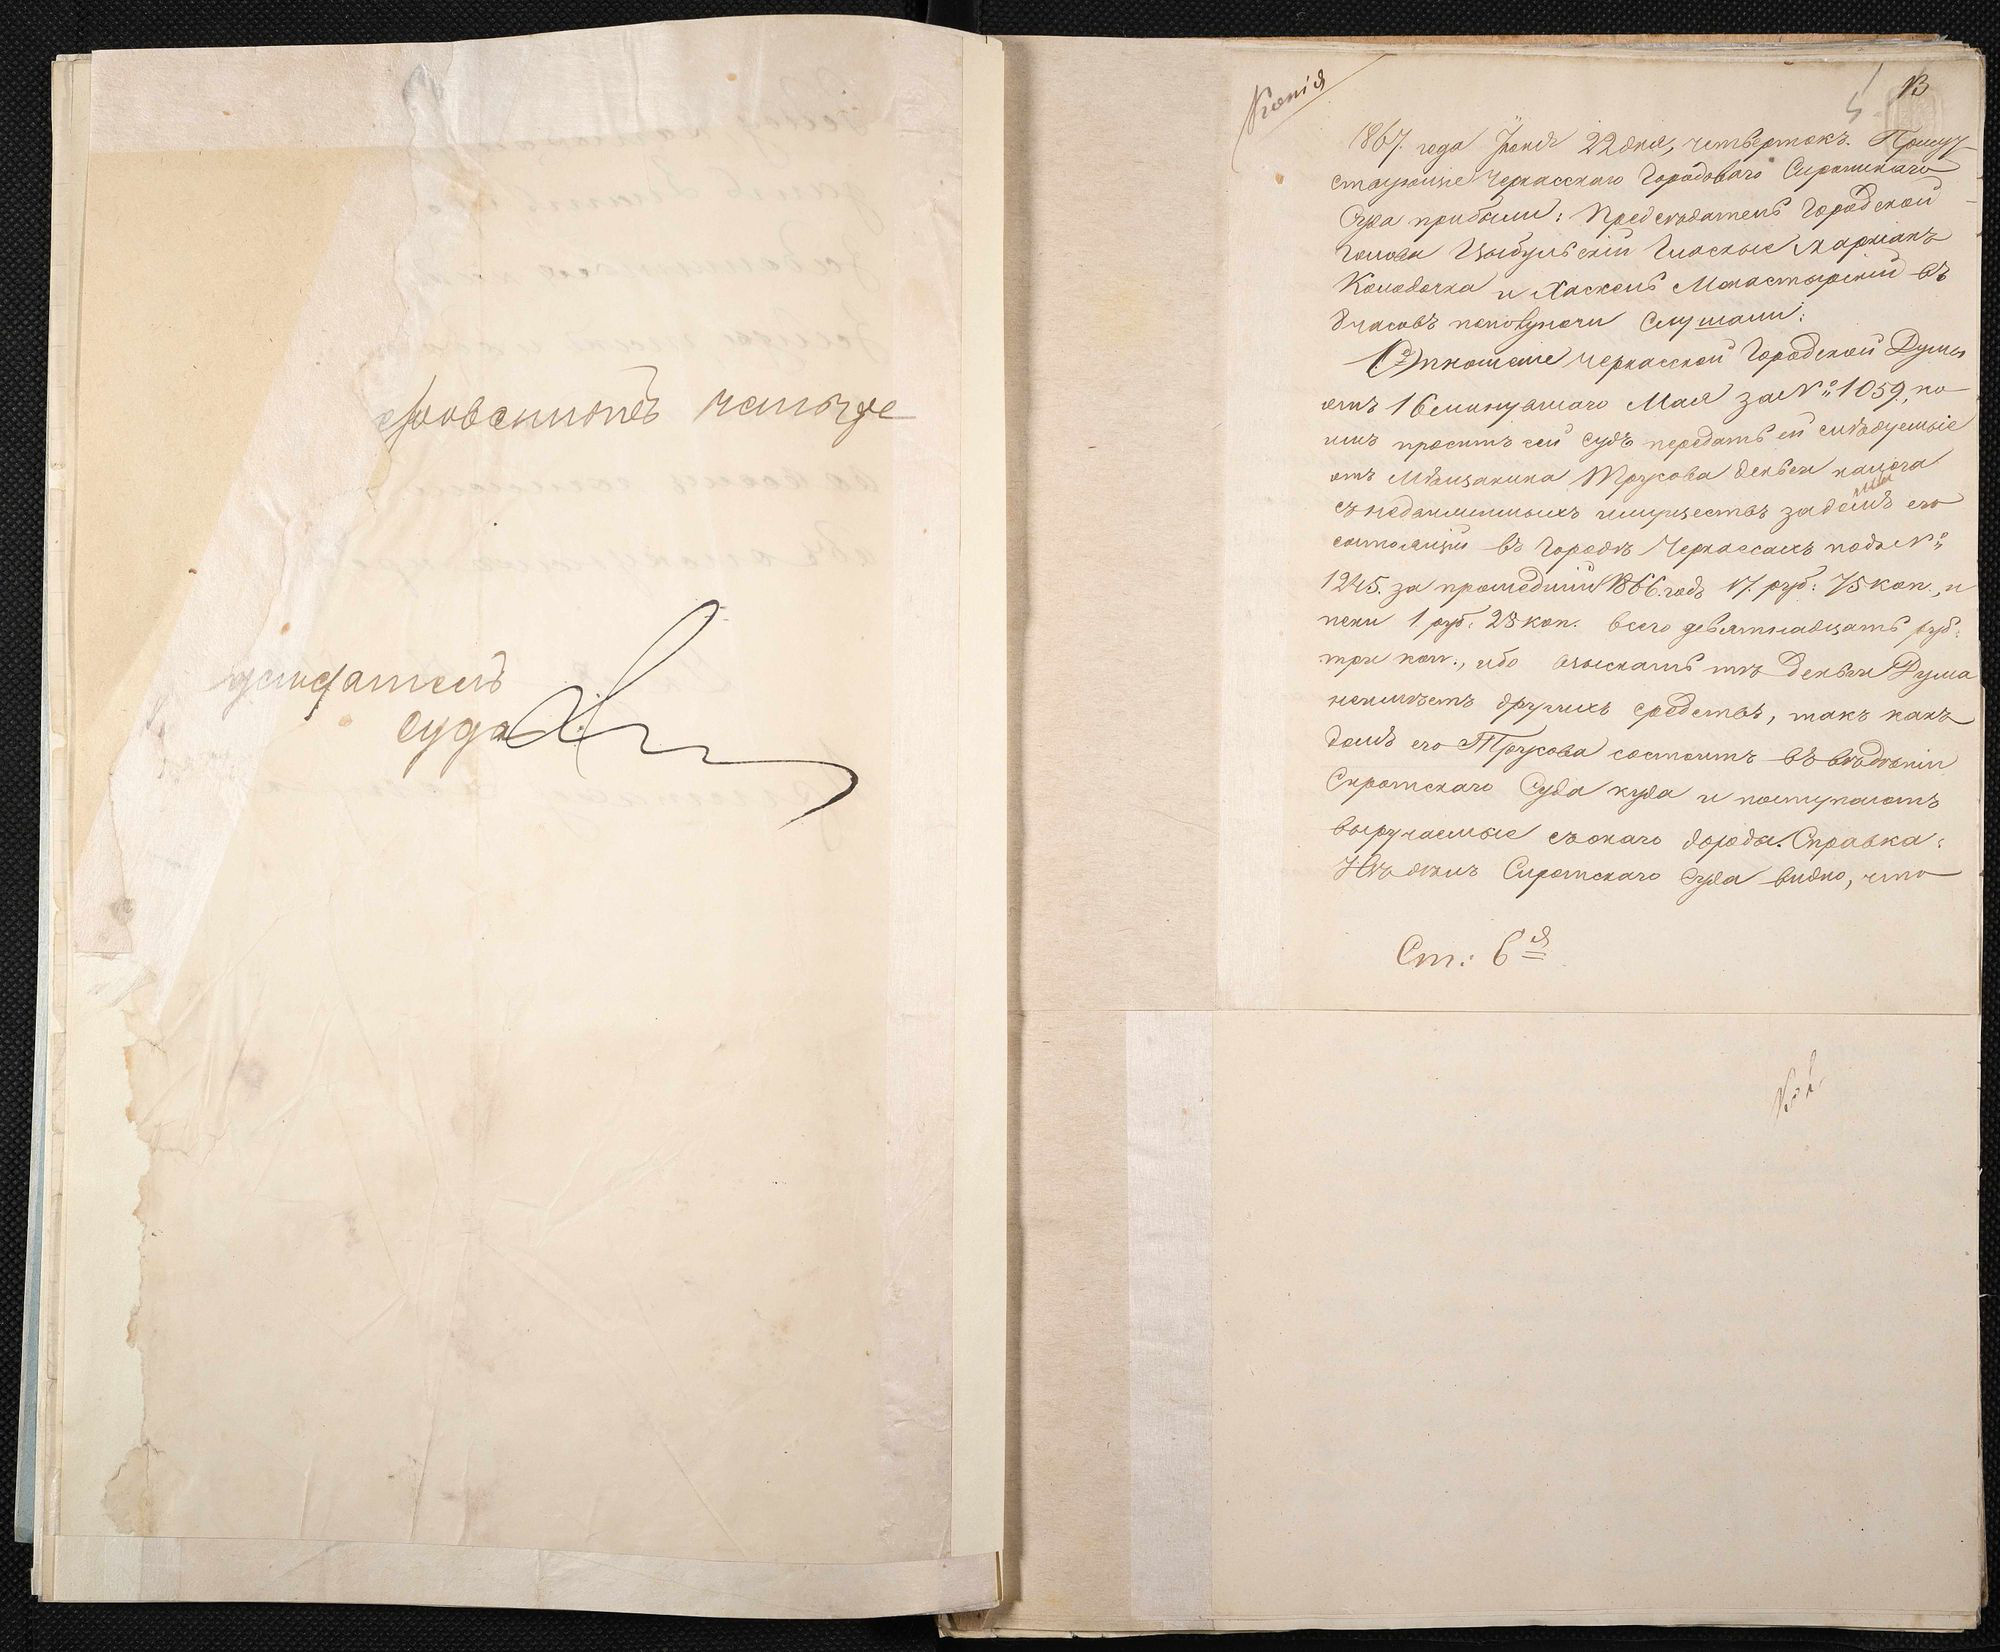 суда
Копія
13
1867. года Іюня 22 дня, четвертокъ. Присут-
ствующіе Черкасскаго Городоваго Сиротскаго
Суда прибыли: Председатель Городской
Голова Цыбульскій Гласные Харлант
Колодочка и Хаскель Монастырскій въ
часовъ пополуночи Слушали:
Отношеніе Черкасской Городской Думы
отъ 16 минувшаго Мая за № 1059, ко-
имъ проситъ сей Судъ передать ей следуемые
отъ Мѣщанина Трусова деньги налога
съ недвижимыхъ имуществъ за домъ его
состоящій въ Городѣ Черкассахъ подъ №
1245. за прошедшій 1866. годъ 17. руб: 75 коп., и
пени 1 руб: 28 коп. всего девятнадцать руб:
три коп., ибо взыскать тѣ деньги Дума
неимѣетъ другихъ средствъ, такъ какъ
домъ его Трусова состоитъ въ вѣденіи
Сиротскаго Суда куда и поступаютъ
выручаемые съ онаго доходы. Справка:
Изъ дѣлъ Сиротскаго Суда видно, что
Ст: 6я